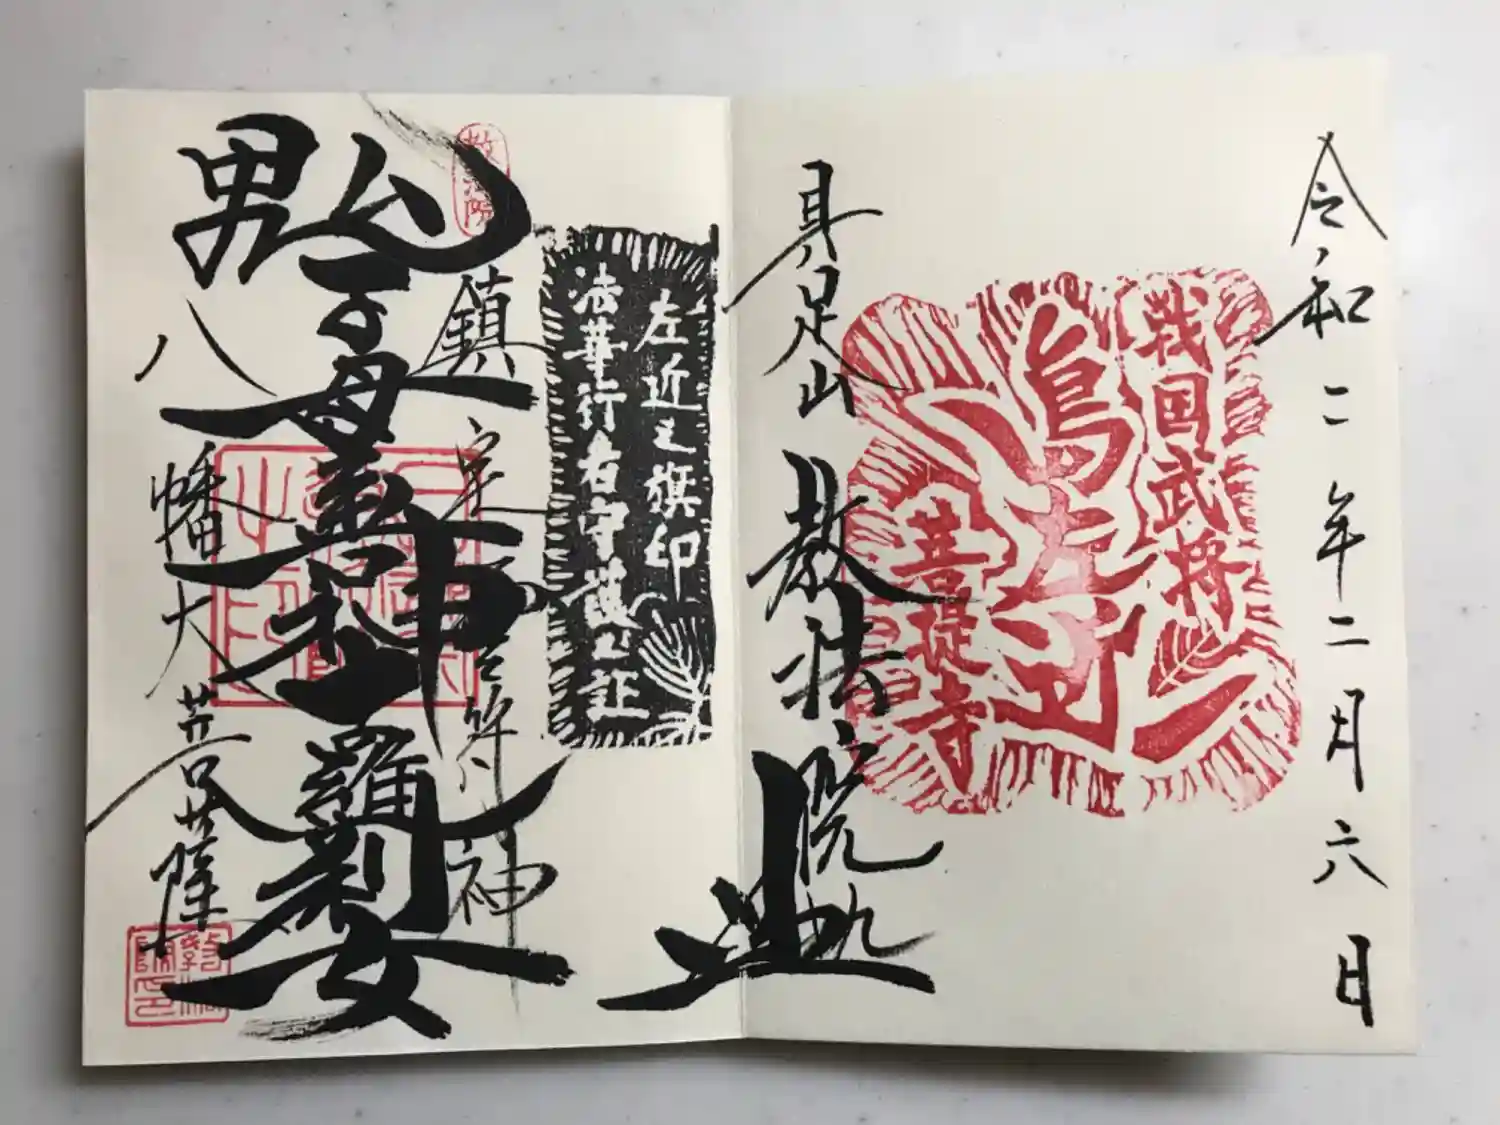 令和二年二月六日
戦国武将
島左近
菩提寺
具足山
教法院
左近之旗印
法華行者守護之証
鎮宅霊符神
鬼子母善神
羅刹女
男
八幡大菩薩